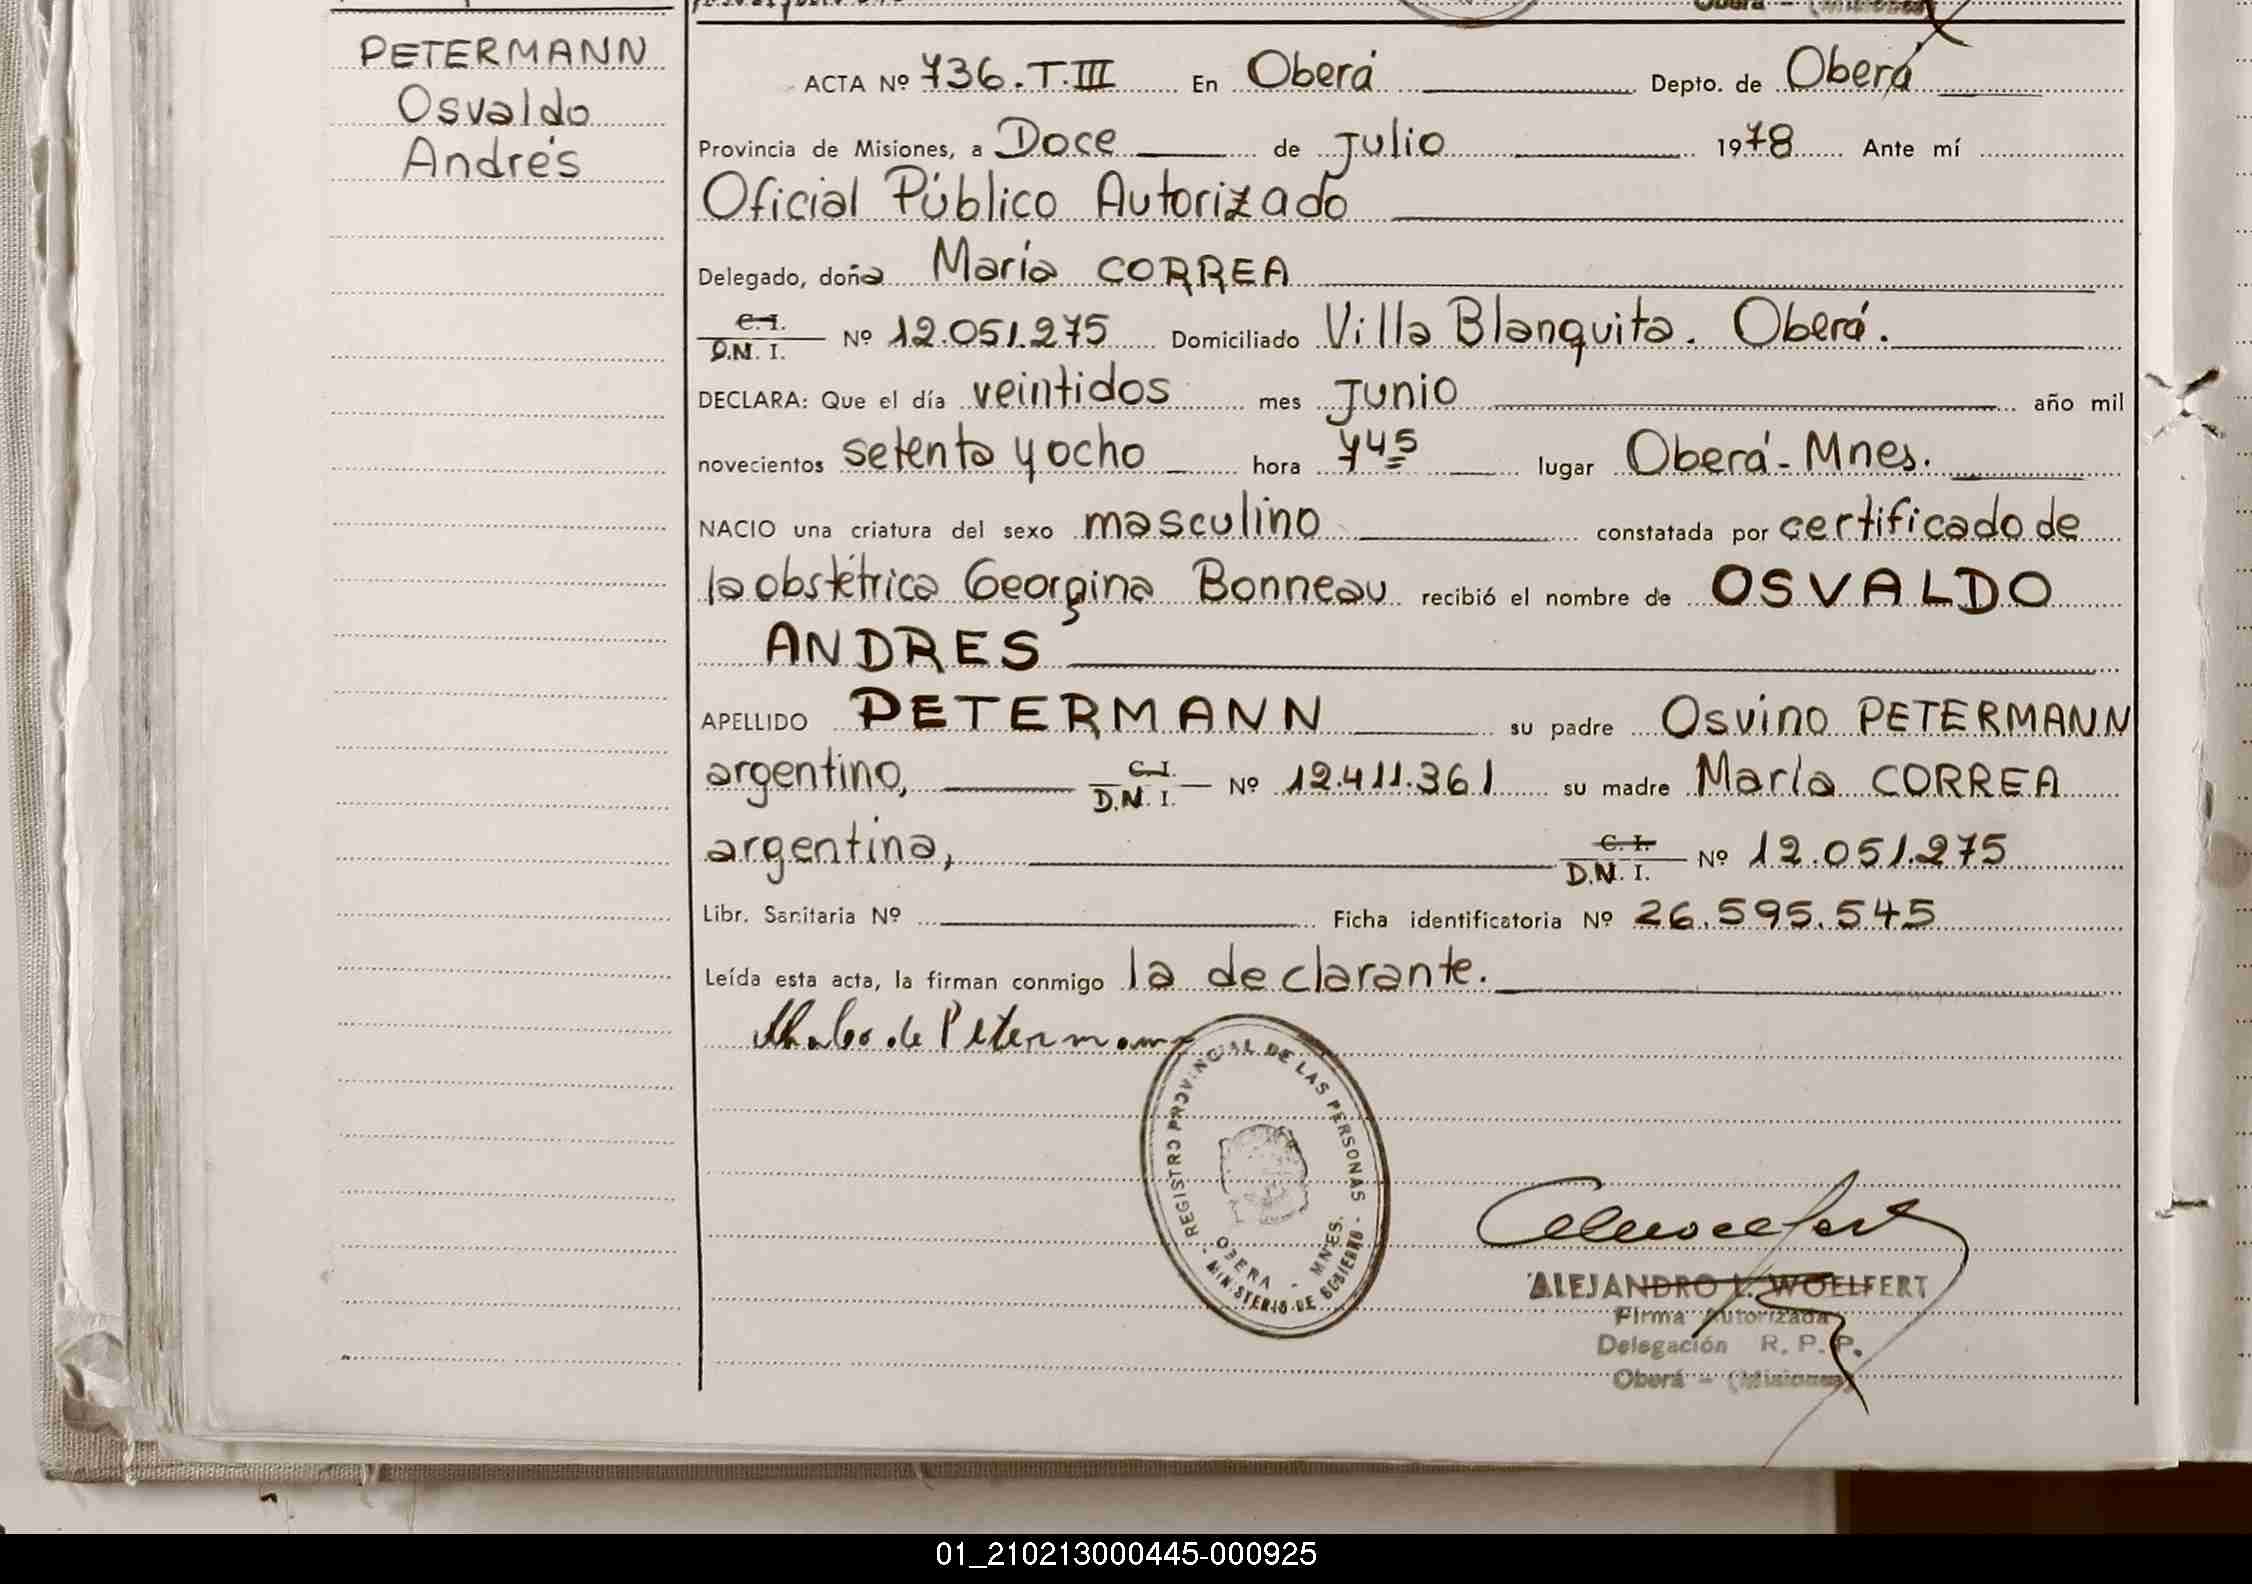 PETERMANN
Osvaldo
Andrés
ACTA Nº 736.T.III En Oberá Depto. de Oberá
Provincia de Misiones, a Doce de Julio 1978 Ante mí
Oficial Público Autorizado
Delegado, doña María CORREA
C.I.
D.N.I. Nº 12.051.275 Domiciliado Villa Blanquita. Oberá.
DECLARA: Que el día veintidos mes Junio año mil
novecientos setenta y ocho hora 745 lugar Oberá-Mnes.
NACIO una criatura del sexo masculino constatada por certificado de
la obstétrica Georgina Bonneau recibió el nombre de OSVALDO
ANDRES
APELLIDO PETERMANN su padre Osvino PETERMANN
argentino, C.I. D.N.I. Nº 12.411.361 su madre María CORREA
argentina, C.I. D.N.I. Nº 12.051.275
Libr. Sanitaria Nº Ficha identificatoria Nº 26.595.545
Leída esta acta, la firman conmigo la declarante.
de Petermann
REGISTRO PROVINCIAL DE LAS PERSONAS
OBERA - MNES.
MINISTERIO DE GOBIERNO
ALEJANDRO L. WOELFERT
Firma Autorizada
Delegación R. P. P.
Oberá - (Misiones)
01_210213000445-000925